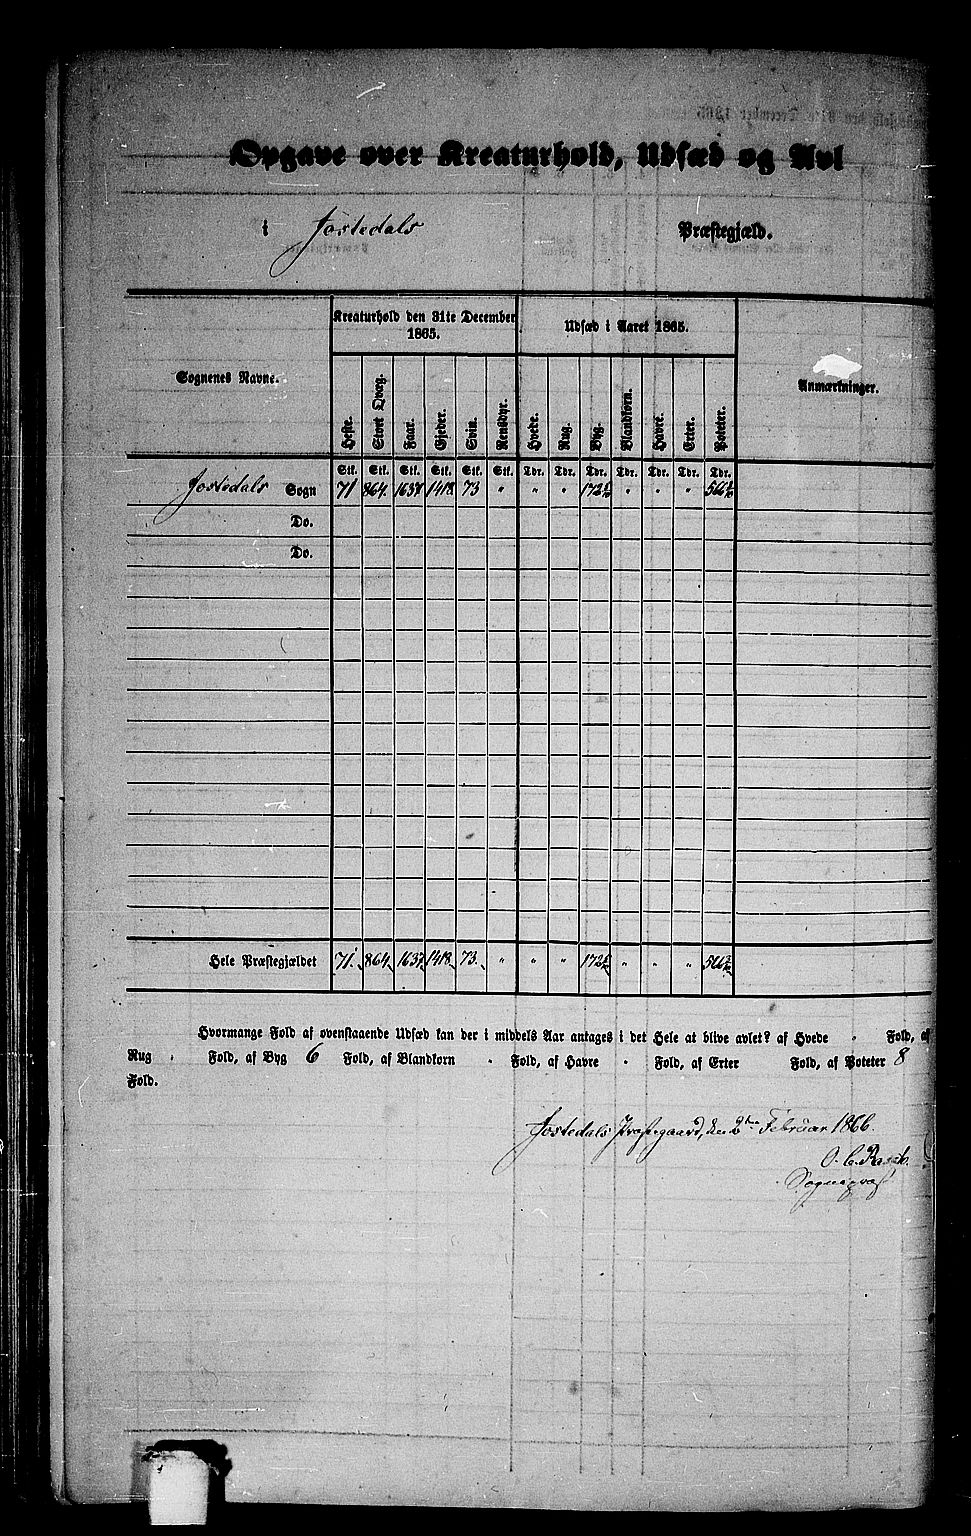 Opgave over Kreaturhold, Udsæd og Avl
i Jostedals Præstegjæld.
Sognenes Navne. Kreaturhold den 31te December 1865. Udsæd i Aaret 1865. Anmærkninger.
Heste. Stort Qvæg. Faar. Gjeder. Svin. Rensdyr. Hvede. Rug. Byg. Blandkorn. Havre. Erter. Poteter.
Stk. Stk. Stk. Stk. Stk. Stk. Tdr. Tdr. Tdr. Tdr. Tdr. Tdr. Tdr.
Jostedals Sogn 71 864. 1637 1418 73 " " " 172 " " " 566
Do.
Do.
Hele Præstegjældet 71. 864. 1637 1418. 73. " " " 172 " " " 566
Hvormange Fold af ovenstaaende Udsæd kan der i middels Aar antages i det Hele at blive avlet? af Hvede " Fold, af
Rug " Fold, af Byg 6 Fold, af Blandkorn " Fold, af Havre " Fold, af Erter Fold, af Poteter 8
Fold.
Jostedals Præstegaard, den 2den Februar 1866.
O. C. Rasch.
Sognepræst